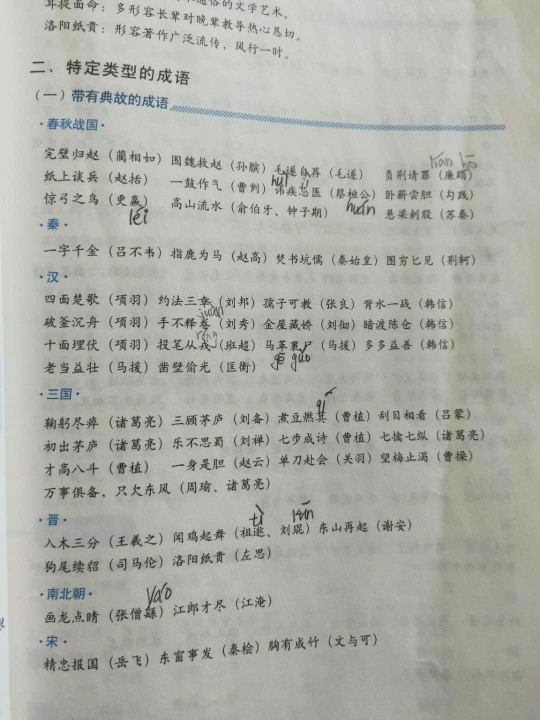 通俗的文学艺术。
耳提面命：多形容长辈对晚辈教导热心恳切。
洛阳纸贵：形容著作广泛流传，风行一时。
二、特定类型的成语
（一）带有典故的成语
·春秋战国·
lián pō
完璧归赵（蔺相如） 围魏救赵（孙膑） 毛遂自荐（毛遂） 负荆请罪（廉颇）
huì jí
纸上谈兵（赵括） 一鼓作气（曹刿） 讳疾忌医（蔡桓公） 卧薪尝胆（勾践）
léi huán
惊弓之鸟（更羸） 高山流水（俞伯牙、钟子期） 悬梁刺股（苏秦）
·秦·
一字千金（吕不韦） 指鹿为马（赵高） 焚书坑儒（秦始皇） 图穷匕见（荆轲）
·汉·
四面楚歌（项羽） 约法三章（刘邦） 孺子可教（张良） 背水一战（韩信）
juàn
破釜沉舟（项羽） 手不释卷（刘秀） 金屋藏娇（刘彻） 暗渡陈仓（韩信）
róng
十面埋伏（项羽） 投笔从戎（班超） 马革裹尸（马援） 多多益善（韩信）
gé guǒ
老当益壮（马援） 凿壁偷光（匡衡）
·三国·
qí
鞠躬尽瘁（诸葛亮） 三顾茅庐（刘备） 煮豆燃萁（曹植） 刮目相看（吕蒙）
初出茅庐（诸葛亮） 乐不思蜀（刘禅） 七步成诗（曹植） 七擒七纵（诸葛亮）
才高八斗（曹植） 一身是胆（赵云） 单刀赴会（关羽） 望梅止渴（曹操）
万事俱备，只欠东风（周瑜、诸葛亮）
·晋·
tì kūn
入木三分（王羲之） 闻鸡起舞（祖逖、刘琨） 东山再起（谢安）
狗尾续貂（司马伦） 洛阳纸贵（左思）
·南北朝·
yáo
画龙点睛（张僧繇） 江郎才尽（江淹）
·宋·
精忠报国（岳飞） 东窗事发（秦桧） 胸有成竹（文与可）